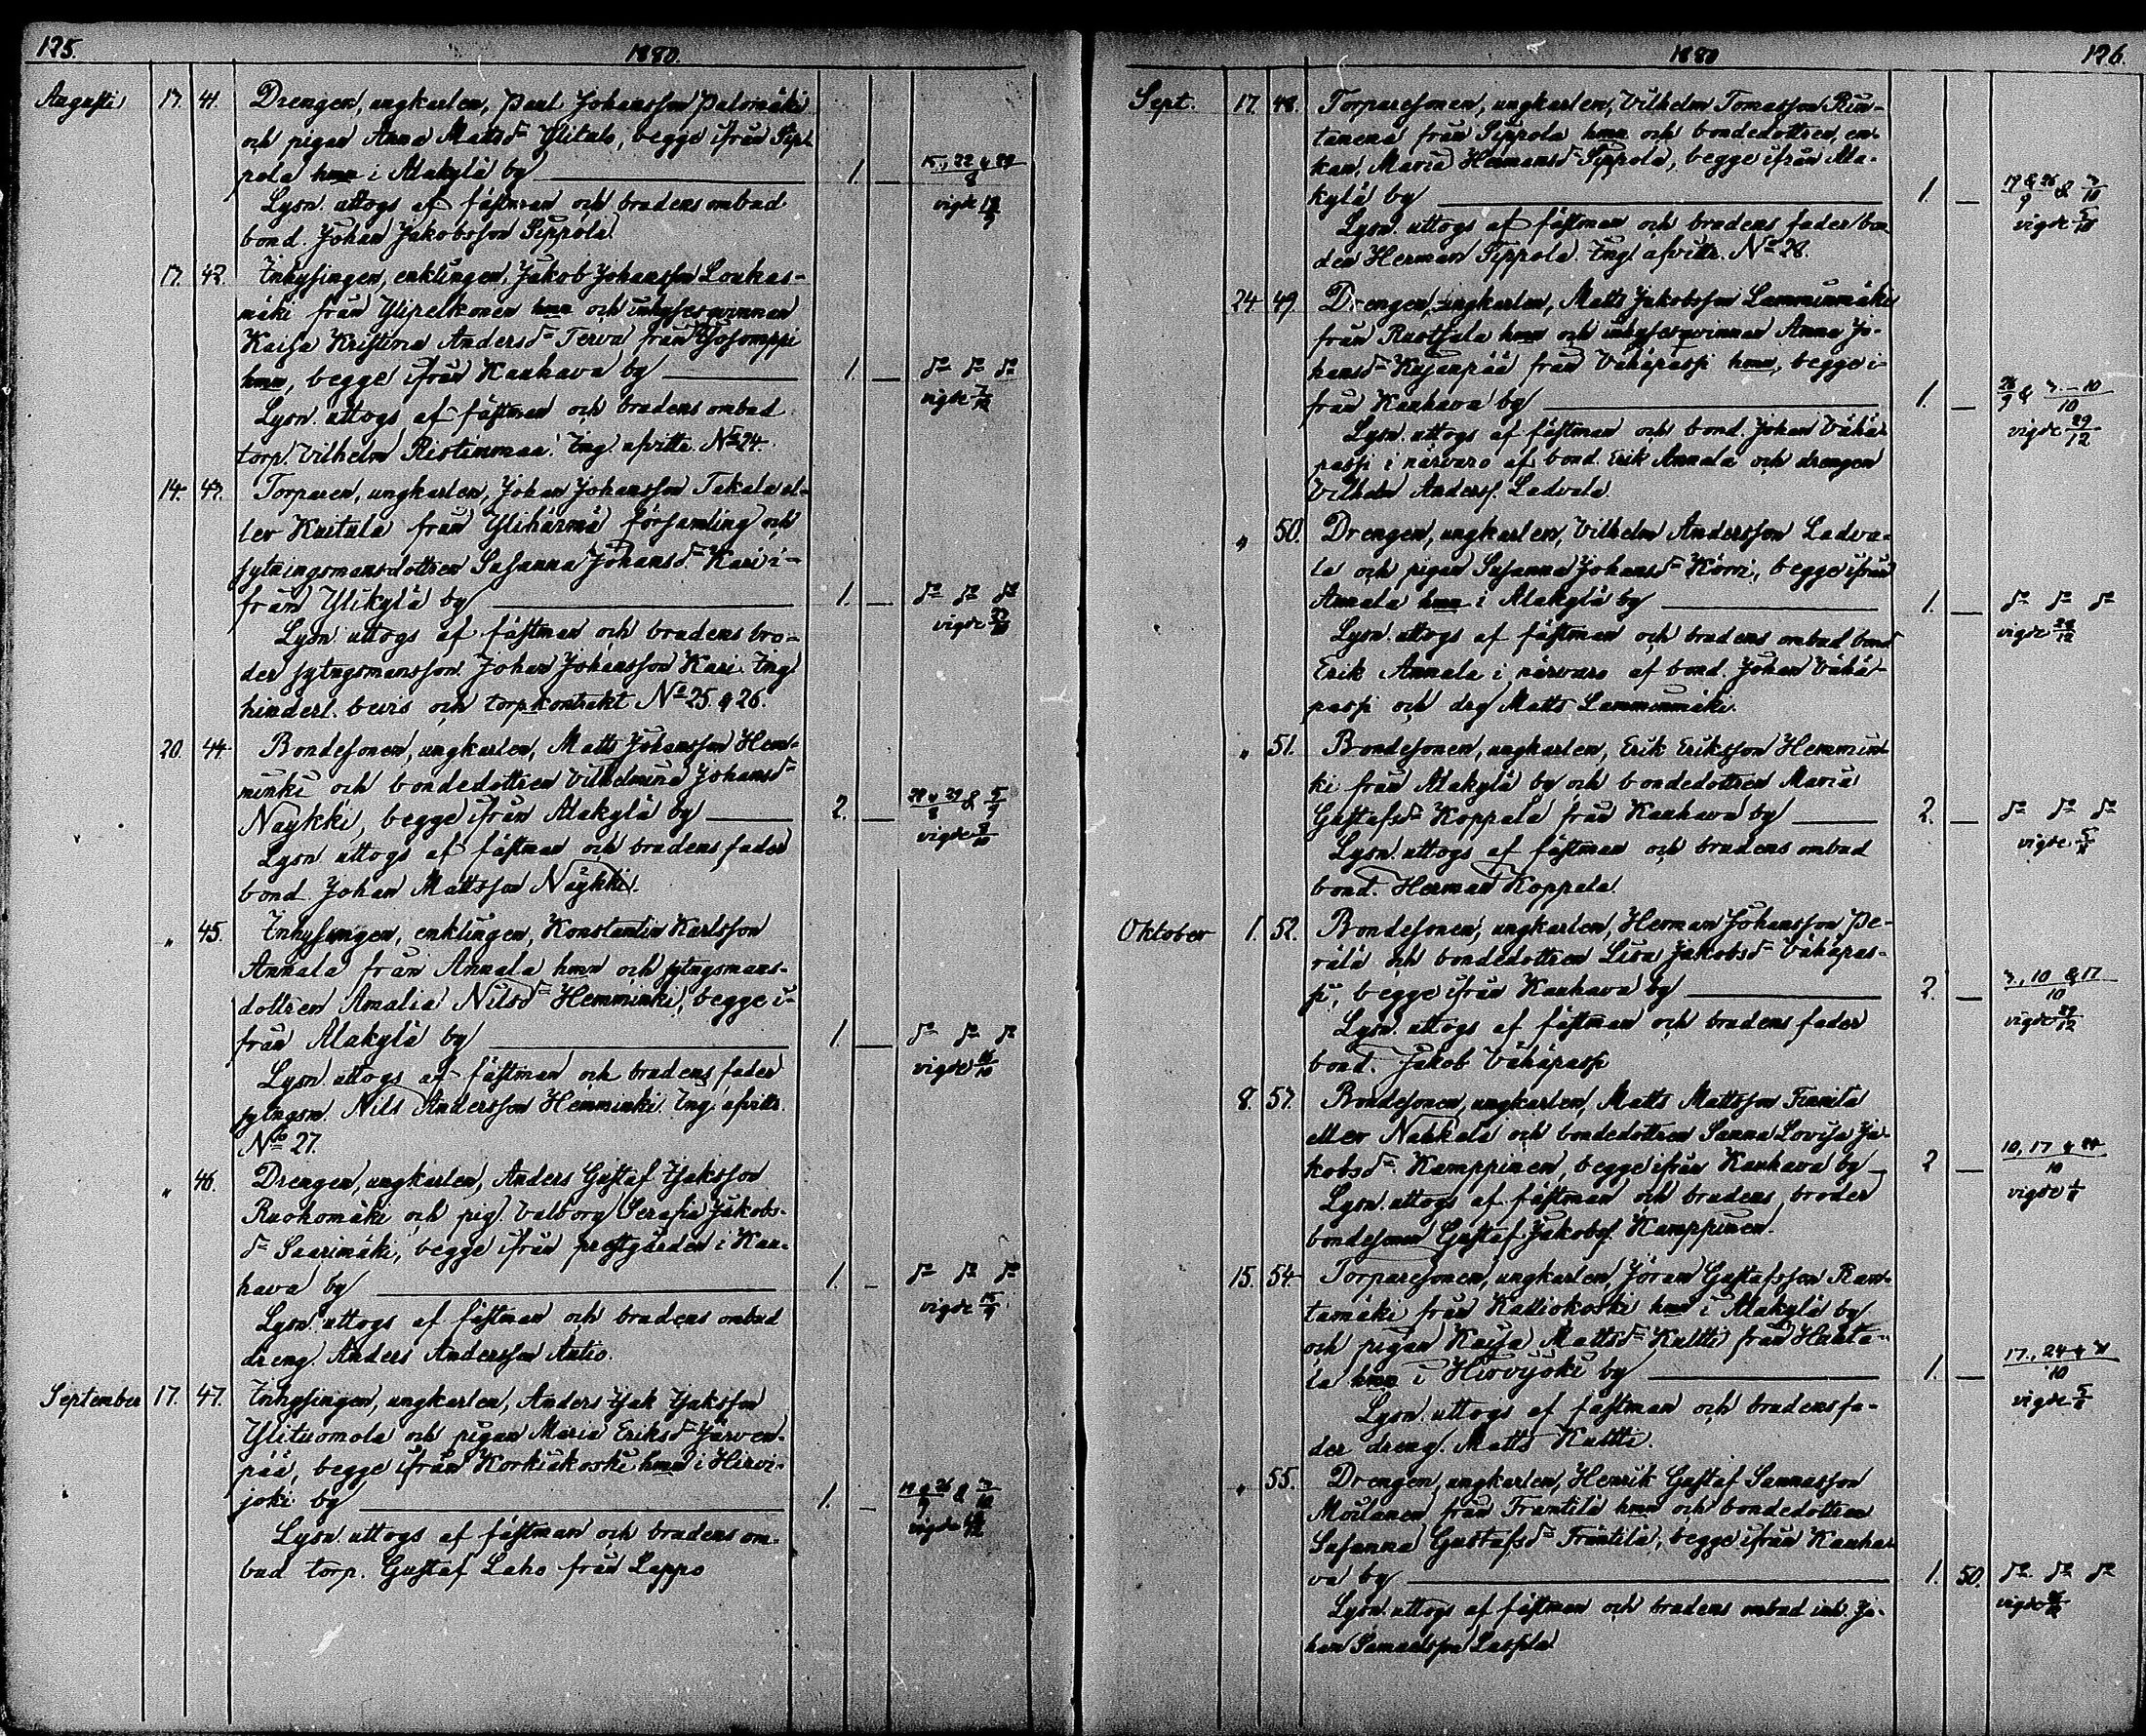 125.
1880.
Augusti 17. 41. Drengen, ungkarlen, Paul Johansson Palomäki
och pigan Anna Mattsdr Ylitalo, begge ifrån Sip-
pola hmn i Alakylä by 1. — 15., 22 & 29/8
Lysn. uttogs af fästman och brudens ombud vigde
bond. Johan Jakobsson Sippola.
17. 42. Inhysingen, enklingen, Jakob Johansson Loukas-
mäki från Ylipelkonen hmn och inhysesqvinnan
Kaisa Kristina Andersdr Terva från Yosomppi
hmn, begge ifrån Kauhava by 1. — do do do
Lysn. uttogs af fästman och brudens ombud vigde
torp. Vilhelm Ristimmaa. Ing. afvittr. No 24.
14. 43. Torparen, ungkarlen, Johan Johansson Takala el-
ler Knitula från Ylihärmä församling och
sytningsmansdottren Susanna Johansdr Kari i-
från Ylikylä by 1. — do do do
Lysn. uttogs af fästman och brudens bro- vigde
der sytngsmansson Johan Johansson Kari. Ing.
hinderl. bevis och torpkontrakt No 25. & 26.
20. 44. Bondesonen, ungkarlen, Matts Johansson Hem-
minki och bondedottren Vilhelmina Johansdr
Naykki, begge ifrån Alakylä by 2. — 22 & 29/8 & 5/9
Lysn. uttogs af fästman och brudens fader vigde
bond. Johan Mattsson Naykki.
" 45. Inhysingen, enklingen, Konstantin Karlsson
Annala från Annala hmn och sytngsmans-
dottren Amalia Nilsdr Hemminki, begge i-
från Alakylä by 1. — do do do
Lysn. uttogs af fästman och brudens fader vigde
sytngsm. Nils Andersson Hemminki. Ing. afvittr.
No 27.
" 46. Drengen, ungkarlen, Anders Gustaf Isaksson
Ruokomäki och pig. Valborg Serafia Jakobs-
dr Saarimäki, begge ifrån prestgården i Kau-
hava by 1. — do do do
Lysn. uttogs af fästman och brudens ombud vigde 15/9
dreng. Anders Andersson Autio.
September 17. 47. Inhysingen, ungkarlen, Anders Isak Isaksson
Ylituomola och pigan Maria Eriksdr Järven-
pää, begge ifrån Korkiakoski hmn i Hirvi-
joki by 1. — 19 & 26/9 & 3/10
Lysn. uttogs af fästman och brudens om- vigde
bud torp. Gustaf Laho från Lappo
1880
126.
Sept. 17. 48. Torparesonen, ungkarlen, Vilhelm Tomasson Rin-
tanena från Sippola hmn och bondedottren, en-
kan, Maria Hermansdr Sippola, begge ifrån Ala-
kylä by 1. — 19 & 26/9 & 3/10
Lysn. uttogs af fästman och brudens fader bon- vigde 5/10
den Herman Sippola. Ing. afvittr. No 28.
24 49. Drengen, ungkarlen, Matts Jakobsson Lamminmäki
från Ruotsala hmn och inhysesqvinnan Anna Jo-
hansdr Kujanpää från Vähäpassi hmn, begge i-
från Kauhava by 1. — 26/9 & 3.–10/10
Lysn. uttogs af fästman och bond. Johan Vähä- vigde 29/12
passi i närvaro af bond. Erik Annala och drengen
Vilhelm Anderss. Ladvala.
" 50. Drengen, ungkarlen, Vilhelm Andersson Ladva-
la och pigan Susanna Johansdr Körri, begge ifrån
Annala hmn i Alakylä by 1. — do do do
Lysn. uttogs af fästman och brudens ombud bond vigde
Erik Annala i närvaro af bond. Johan Vähä-
passi och drg Matts Lamminmäki.
" 51. Bondesonen, ungkarlen, Erik Eriksson Hemmin-
ki från Alakylä by och bondedottren Maria
Gustafsdr Koppala från Kauhava by 2. — do do do
Lysn. uttogs af fästman och brudens ombud vigde
bond. Herman Koppala.
Oktober 1. 52. Bondesonen, ungkarlen, Herman Johansson Pe-
rälä och bondedottren Lisa Jakobsdr Vähäpas-
si, begge ifrån Kauhava by 2. — 3., 10 & 17/10
Lysn. uttogs af fästman och brudens fader vigde
bond. Jakob Vähäpassi
8. 53. Bondesonen, ungkarlen, Matts Mattsson Finnilä
eller Nahkala och bondedottren Sanna Lovisa Ja-
kobsdr Kamppinen, begge ifrån Kauhava by 2 — 10, 17 & 24/10
Lysn. uttogs af fästman och brudens broder vigde
bondesonen Gustaf Jakobss. Kamppinen.
15. 54. Torparesonen, ungkarlen, Jöran Gustafsson Ran-
tamäki från Kalliokoski hmn i Alakylä by
och pigan Kaisa Mattsdr Kultti från Hauta-
la hmn i Hirvijoki by 1. — 17., 24 & 31/10
Lysn. uttogs af fästman och brudens fa- vigde
der dreng. Matts Kultti.
" 55. Drengen, ungkarlen, Henrik Gustaf Sannasson
Moilanen från Frantilä hmn och bondedottren
Susanna Gustafsdr Frantilä, begge ifrån Kauha-
va by 1. 50. do do do
Lysn. uttogs af fästman och brudens ombud inh. Jo- vigde
han Samuelsson Lassila